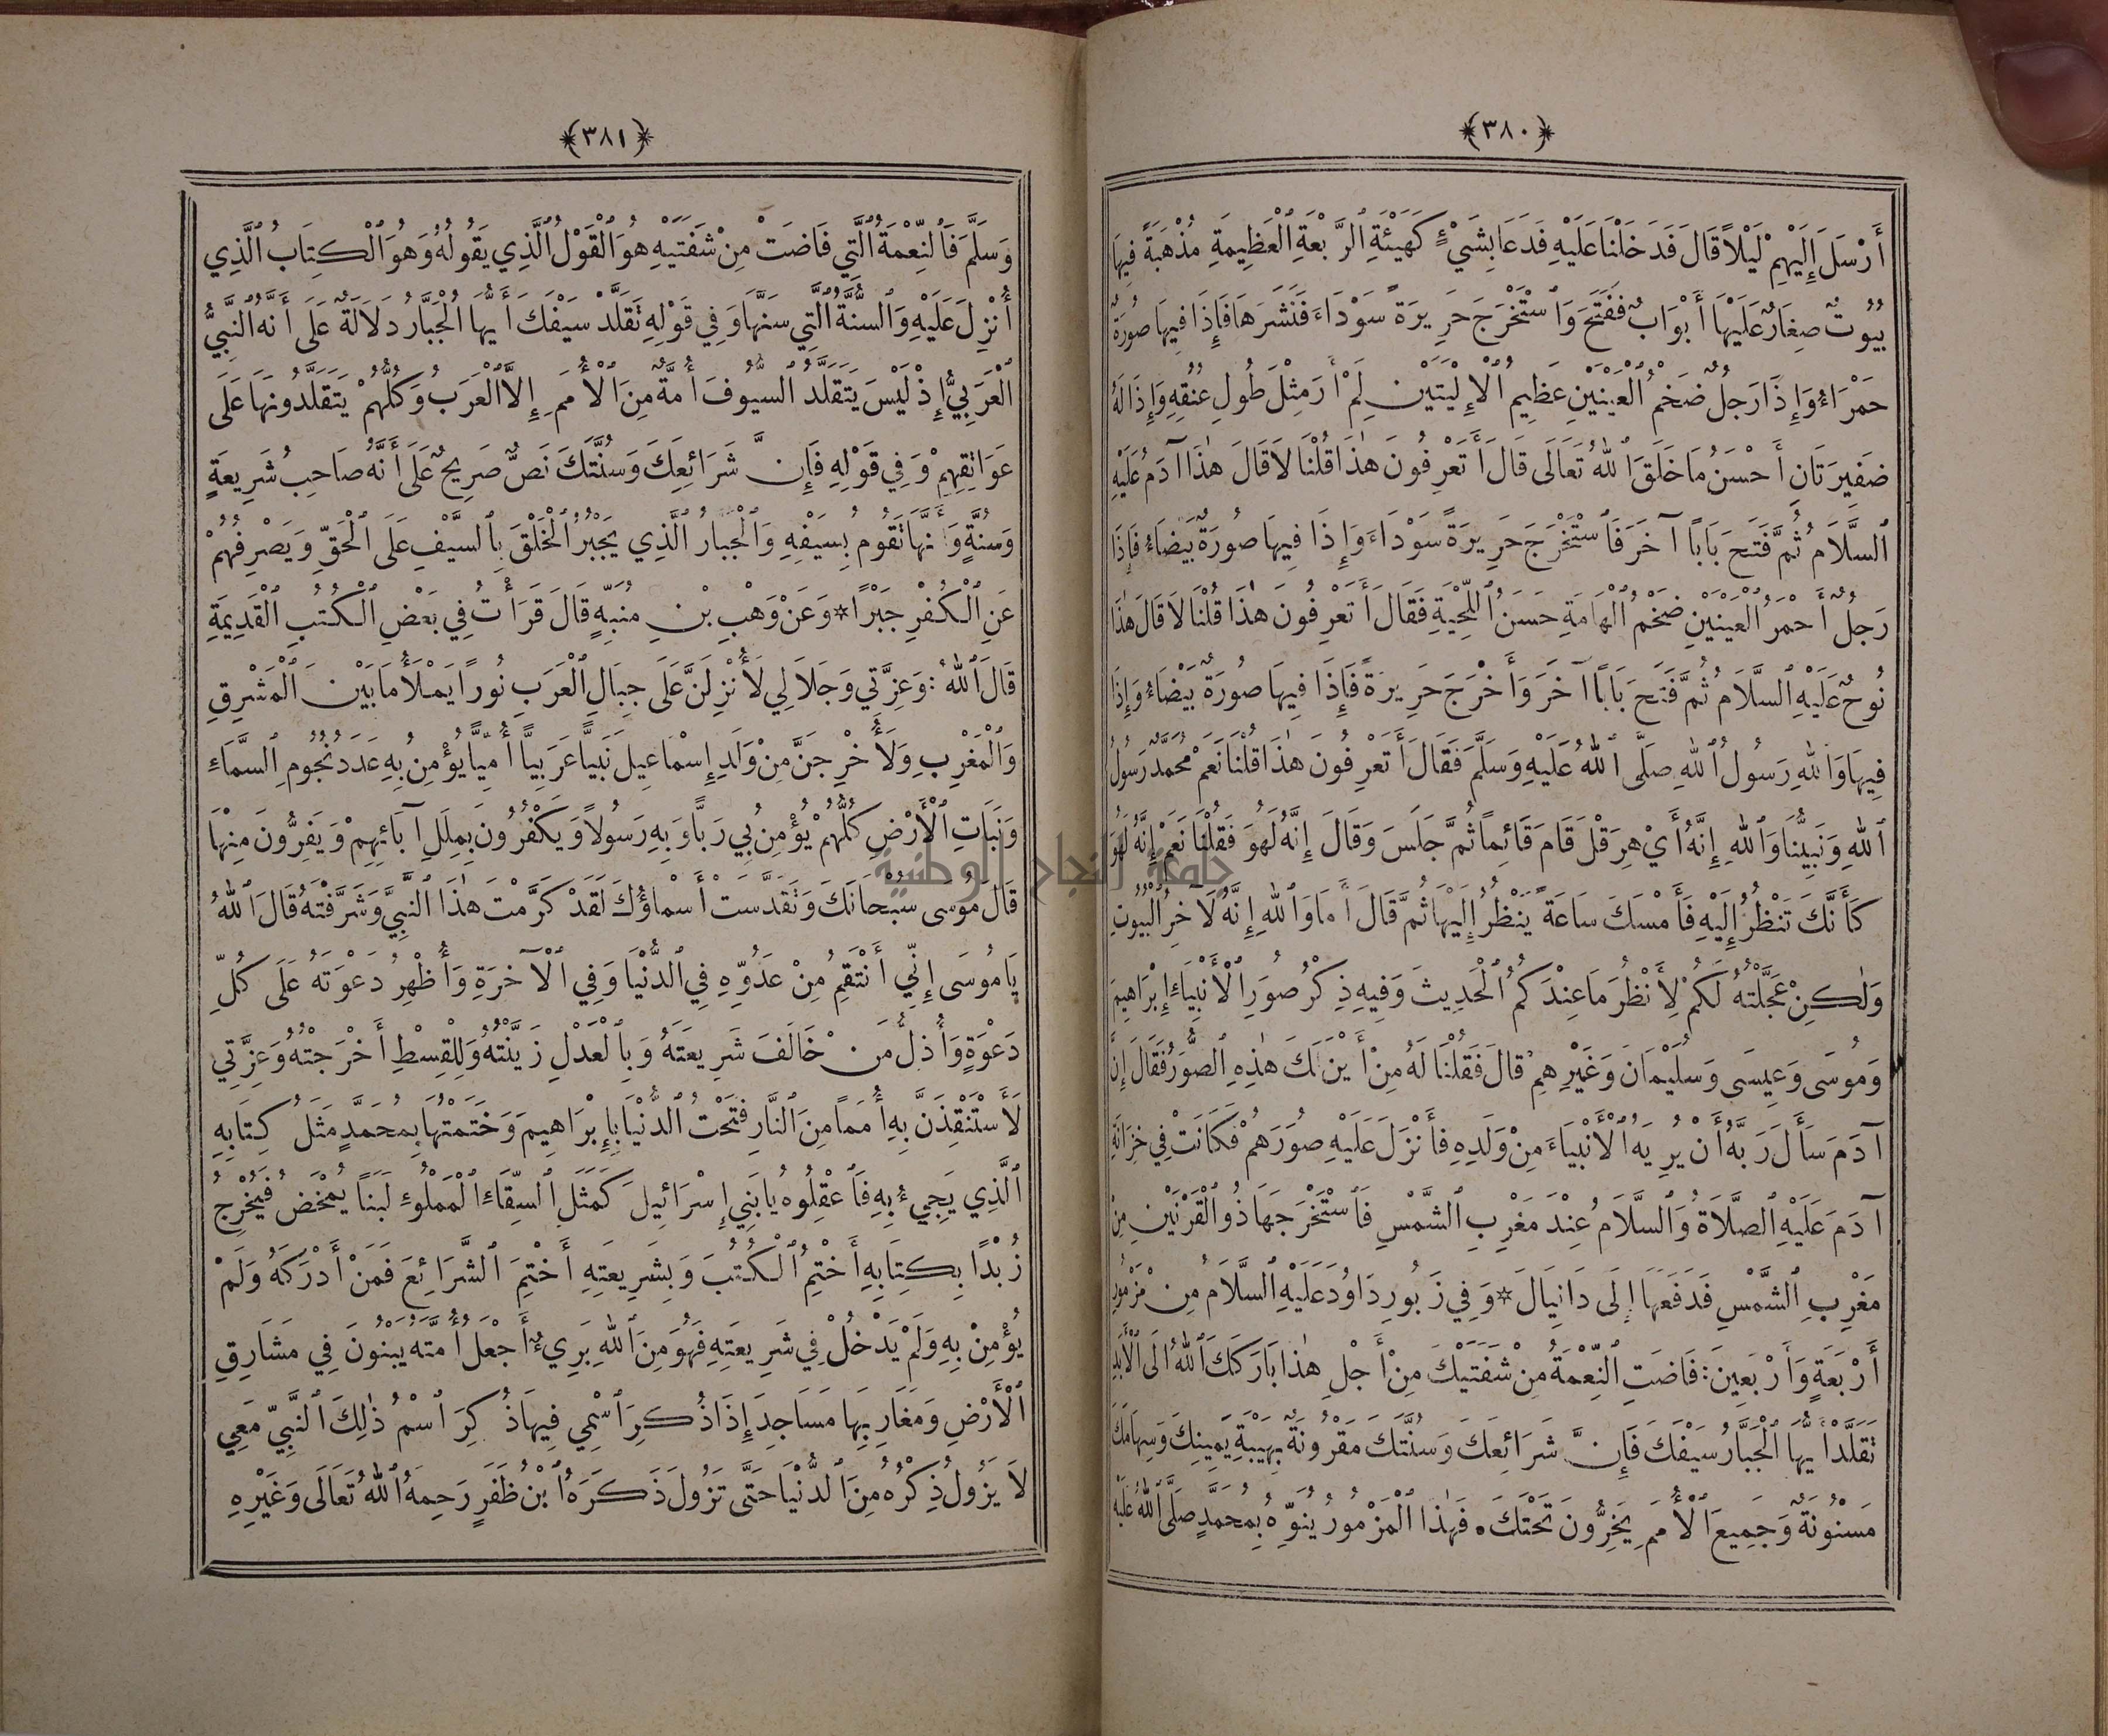 ﴿٣٨٠﴾
أَرْسَلَ إِلَيْهِمْ لَيْلاً قَالَ فَدَخَلْنَا عَلَيْهِ فَدَعَا بِشَيْءٍ كَهَيْئَةِ ٱلرَّبْعَةِ ٱلْعَظِيمَةِ مُذْهَبَةً فِيهَا
بُيُوتٌ صِغَارٌ عَلَيْهَا أَبْوَابٌ فَفَتَحَ وَٱسْتَخْرَجَ حَرِيرَةً سَوْدَاءَ فَنَشَرَهَا فَإِذَا فِيهَا صُورَةٌ
حَمْرَاءُ وَإِذَا رَجُلٌ ضَخْمُ ٱلْعَيْنَيْنِ عَظِيمُ ٱلْإِلْيَتَيْنِ لَمْ أَرَ مِثْلَ طُولِ عُنُقِهِ وَإِذَا لَهُ
ضَفِيرَتَانِ أَحْسَنُ مَا خَلَقَ ٱللهُ تَعَالَى قَالَ أَتَعْرِفُونَ هٰذَا قُلْنَا لَا قَالَ هٰذَا آدَمُ عَلَيْهِ
ٱلسَّلَامُ ثُمَّ فَتَحَ بَابًا آخَرَ فَٱسْتَخْرَجَ حَرِيرَةً سَوْدَاءَ وَإِذَا فِيهَا صُورَةٌ بَيْضَاءُ فَإِذَا
رَجُلٌ أَحْمَرُ ٱلْعَيْنَيْنِ ضَخْمُ ٱلْهَامَةِ حَسَنُ ٱللِّحْيَةِ فَقَالَ أَتَعْرِفُونَ هٰذَا قُلْنَا لَا قَالَ هٰذَا
نُوحٌ عَلَيْهِ ٱلسَّلَامُ ثُمَّ فَتَحَ بَابًا آخَرَ وَأَخْرَجَ حَرِيرَةً فَإِذَا فِيهَا صُورَةٌ بَيْضَاءُ وَإِذَا
فِيهَا وَٱللهِ رَسُولُ ٱللهِ صَلَّى ٱللهُ عَلَيْهِ وَسَلَّمَ فَقَالَ أَتَعْرِفُونَ هٰذَا قُلْنَا نَعَمْ مُحَمَّدٌ رَسُولُ
ٱللهِ وَنَبِيُّنَا وَٱللهِ إِنَّهُ أَيْ هِرَقْلَ قَامَ قَائِمًا ثُمَّ جَلَسَ وَقَالَ إِنَّهُ لَهُوَ فَقُلْنَا نَعَمْ إِنَّهُ لَهُوَ
كَأَنَّكَ تَنْظُرُ إِلَيْهِ فَأَمْسَكَ سَاعَةً يَنْظُرُ إِلَيْهَا ثُمَّ قَالَ أَمَا وَٱللهِ إِنَّهُ لَآخِرُ ٱلْبُيُوتِ
وَلٰكِنْ عَجَّلْتُهُ لَكُمْ لِأَنْظُرَ مَا عِنْدَكُمُ ٱلْحَدِيثَ وَفِيهِ ذِكْرُ صُوَرِ ٱلْأَنْبِيَاءِ إِبْرَاهِيمَ
وَمُوسَى وَعِيسَى وَسُلَيْمَانَ وَغَيْرِهِمْ قَالَ فَقُلْنَا لَهُ مِنْ أَيْنَ لَكَ هٰذِهِ ٱلصُّوَرُ فَقَالَ إِنَّ
آدَمَ سَأَلَ رَبَّهُ أَنْ يُرِيَهُ ٱلْأَنْبِيَاءَ مِنْ وَلَدِهِ فَأَنْزَلَ عَلَيْهِ صُوَرَهُمْ فَكَانَتْ فِي خِزَانَةِ
آدَمَ عَلَيْهِ ٱلصَّلَاةُ وَٱلسَّلَامُ عِنْدَ مَغْرِبِ ٱلشَّمْسِ فَٱسْتَخْرَجَهَا ذُو ٱلْقَرْنَيْنِ مِنْ
مَغْرِبِ ٱلشَّمْسِ فَدَفَعَهَا إِلَى دَانِيَالَ * وَفِي زَبُورِ دَاوُدَ عَلَيْهِ ٱلسَّلَامُ مِنْ مَزْمُورِ
أَرْبَعَةٍ وَأَرْبَعِينَ: فَاضَتِ ٱلنِّعْمَةُ مِنْ شَفَتَيْكَ مِنْ أَجْلِ هٰذَا بَارَكَكَ ٱللهُ إِلَى ٱلْأَبَدِ
تَقَلَّدْ أَيُّهَا ٱلْجَبَّارُ سَيْفَكَ فَإِنَّ شَرَائِعَكَ وَسُنَّتَكَ مَقْرُونَةٌ بِهَيْبَةِ يَمِينِكَ وَسِهَامَكَ
مَسْنُونَةٌ وَجَمِيعَ ٱلْأُمَمِ يَخِرُّونَ تَحْتَكَ. فَهٰذَا ٱلْمَزْمُورُ يُنَوِّهُ بِمُحَمَّدٍ صَلَّى ٱللهُ عَلَيْهِ
﴿٣٨١﴾
وَسَلَّمَ فَٱلنِّعْمَةُ ٱلَّتِي فَاضَتْ مِنْ شَفَتَيْهِ هُوَ ٱلْقَوْلُ ٱلَّذِي يَقُولُهُ وَهُوَ ٱلْكِتَابُ ٱلَّذِي
أُنْزِلَ عَلَيْهِ وَٱلسُّنَّةُ ٱلَّتِي سَنَّهَا وَفِي قَوْلِهِ تَقَلَّدْ سَيْفَكَ أَيُّهَا ٱلْجَبَّارُ دَلَالَةٌ عَلَى أَنَّهُ ٱلنَّبِيُّ
ٱلْعَرَبِيُّ إِذْ لَيْسَ يَتَقَلَّدُ ٱلسُّيُوفَ أُمَّةٌ مِنَ ٱلْأُمَمِ إِلَّا ٱلْعَرَبُ وَكُلُّهُمْ يَتَقَلَّدُونَهَا عَلَى
عَوَاتِقِهِمْ وَفِي قَوْلِهِ فَإِنَّ شَرَائِعَكَ وَسُنَّتَكَ نَصٌّ صَرِيحٌ عَلَى أَنَّهُ صَاحِبُ شَرِيعَةٍ
وَسُنَّةٍ وَأَنَّهَا تَقُومُ بِسَيْفِهِ وَٱلْجَبَّارُ ٱلَّذِي يَجْبُرُ ٱلْخَلْقَ بِٱلسَّيْفِ عَلَى ٱلْحَقِّ وَيَصْرِفُهُمْ
عَنِ ٱلْكُفْرِ جَبْرًا * وَعَنْ وَهْبِ بْنِ مُنَبِّهٍ قَالَ قَرَأْتُ فِي بَعْضِ ٱلْكُتُبِ ٱلْقَدِيمَةِ
قَالَ ٱللهُ: وَعِزَّتِي وَجَلَالِي لَأُنْزِلَنَّ عَلَى جِبَالِ ٱلْعَرَبِ نُورًا يَمْلَأُ مَا بَيْنَ ٱلْمَشْرِقِ
وَٱلْمَغْرِبِ وَلَأُخْرِجَنَّ مِنْ وَلَدِ إِسْمَاعِيلَ نَبِيًّا عَرَبِيًّا أُمِّيًّا يُؤْمِنُ بِهِ عَدَدَ نُجُومِ ٱلسَّمَاءِ
وَنَبَاتِ ٱلْأَرْضِ كُلُّهُمْ يُؤْمِنُ بِي رَبًّا وَبِهِ رَسُولًا وَيَكْفُرُونَ بِمِلَلِ آبَائِهِمْ وَيَفِرُّونَ مِنْهَا
قَالَ مُوسَى سُبْحَانَكَ وَتَقَدَّسَتْ أَسْمَاؤُكَ لَقَدْ كَرَّمْتَ هٰذَا ٱلنَّبِيَّ وَشَرَّفْتَهُ قَالَ ٱللهُ
يَا مُوسَى إِنِّي أَنْتَقِمُ مِنْ عَدُوِّهِ فِي ٱلدُّنْيَا وَفِي ٱلْآخِرَةِ وَأُظْهِرُ دَعْوَتَهُ عَلَى كُلِّ
دَعْوَةٍ وَأُذِلُّ مَنْ خَالَفَ شَرِيعَتَهُ وَبِٱلْعَدْلِ زَيَّنْتُهُ وَلِلْقِسْطِ أَخْرَجْتُهُ وَعِزَّتِي
لَأَسْتَنْقِذَنَّ بِهِ أُمَمًا مِنَ ٱلنَّارِ فَتَحْتُ ٱلدُّنْيَا بِإِبْرَاهِيمَ وَخَتَمْتُهَا بِمُحَمَّدٍ مَثَلُ كِتَابِهِ
ٱلَّذِي يَجِيءُ بِهِ فَٱعْقِلُوهُ يَا بَنِي إِسْرَائِيلَ كَمَثَلِ ٱلسِّقَاءِ ٱلْمَمْلُوءِ لَبَنًا يُمْخَضُ فَيُخْرِجُ
زُبْدًا بِكِتَابِهِ أَخْتِمُ ٱلْكُتُبَ وَبِشَرِيعَتِهِ أَخْتِمُ ٱلشَّرَائِعَ فَمَنْ أَدْرَكَهُ وَلَمْ
يُؤْمِنْ بِهِ وَلَمْ يَدْخُلْ فِي شَرِيعَتِهِ فَهُوَ مِنَ ٱللهِ بَرِيءٌ أَجْعَلُ أُمَّتَهُ يَبْنُونَ فِي مَشَارِقِ
ٱلْأَرْضِ وَمَغَارِبِهَا مَسَاجِدَ إِذَا ذُكِرَ ٱسْمِي فِيهَا ذُكِرَ ٱسْمُ ذٰلِكَ ٱلنَّبِيِّ مَعِي
لَا يَزُولُ ذِكْرُهُ مِنَ ٱلدُّنْيَا حَتَّى تَزُولَ ذَكَرَهُ ٱبْنُ ظَفَرٍ رَحِمَهُ ٱللهُ تَعَالَى وَغَيْرِهِ
جامعة النجاح الوطنية